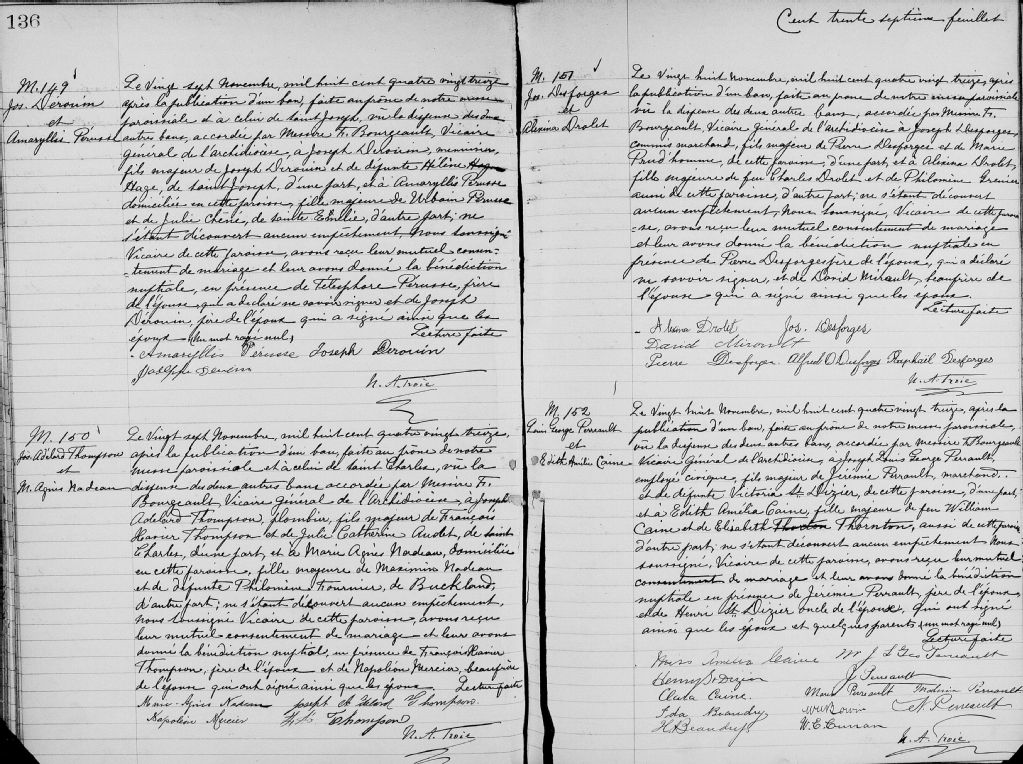 136
M. 149
Jos. Derouin
et
Amaryllis Perusse
Le Vingt sept Novembre, mil huit cent quatre vingt treize
après la publication d'un ban, faite au prône de notre messe
paroissiale et à celui de saint Joseph, vu la dispense des deux
autres bans, accordée par Messire Fr. Bourgeault, Vicaire
général de l'archidiocèse, à Joseph Derouin, menuisier,
fils majeur de Joseph Derouin et de défunte Hélène
Hage, de saint Joseph, d'une part, et à Amaryllis Perusse
domiciliée en cette paroisse, fille majeure de Urbain Perusse
et de Julie Chéné, de sainte Emélie, d'autre part; ne
s'étant découvert aucun empêchement, Nous soussigné
Vicaire de cette paroisse, avons reçu leur mutuel consen-
-tement de mariage et leur avons donné la bénédiction
nuptiale, en présence de Télesphore Pérusse, frère
de l'épouse, qui a déclaré ne savoir signer et de Joseph
Derouin, père de l'époux qui a signé ainsi que les
époux (un mot rayé nul) Lecture faite
Amaryllis Perusse Joseph Derouin
N. A. Troie
M. 150
Jos. Adélard Thompson
et
M. Agnès Nadeau
Le Vingt sept Novembre, mil huit cent quatre vingt treize,
après la publication d'un ban, faite au prône de notre
messe paroissiale et à celui de saint Charles, vu la
dispense des deux autres bans accordée par Messire Fr.
Bourgeault, Vicaire Général de l'Archidiocèse, à Joseph
Adélard Thompson, plombier, fils majeur de François
Xavier Thompson et de Julie Catherine Audet, de saint
Charles, d'une part, et à Marie Agnès Nadeau, domiciliée
en cette paroisse, fille majeure de Maximin Nadeau
et de défunte Philomène Fournier, de Buckland,
d'autre part; ne s'étant découvert aucun empêchement,
nous soussigné Vicaire de cette paroisse, avons reçu
leur mutuel consentement de mariage et leur avons
donné la bénédiction nuptial, en présence de François Xavier
Thompson, père de l'époux et de Napoléon Mercier, beaufrère
de l'épouse qui ont signé ainsi que les époux. Lecture faite
Marie-Agnès Nadeau Joseph Adélard Thompson.
Napoléon Mercier Thompson
N. A. Troie
Cent trente septième feuillet
M. 151
Jos. Desforges
et
Alexina Drolet
Le Vingt huit Novembre, mil huit cent quatre vingt treize, après
la publication d'un ban, faite au prône de notre messe paroissiale
vu la dispense des deux autres bans, accordée par Messire Fr.
Bourgeault, Vicaire Général de l'Archidiocèse à Joseph Desforges,
commis marchand, fils majeur de Pierre Desforges et de Marie
Prud'homme, de cette paroisse, d'une part, et à Alexina Drolet,
fille majeure de feu Charles Drolet et de Philomène Grenier
aussi de cette paroisse, d'autre part; ne s'étant découvert
aucun empêchement, Nous soussigné, Vicaire de cette parois-
-se, avons reçu leur mutuel consentement de mariage
et leur avons donné la bénédiction nuptiale en
présence de Pierre Desforges père de l'époux, qui a déclaré
ne savoir signer, et de David Mirault, beaufrère de
l'épouse qui a signé ainsi que les époux.
Lecture faite
Alexina Drolet Jos. Desforges
David Mirault
Pierre Desforges Alfred O Desforges Raphaël Desforges
N. A. Troie
M. 152
Louis George Perrault
et
Edith Amélia Caine
Le Vingt huit Novembre, mil huit cent quatre vingt treize, après la
publication d'un ban, faite au prône de notre messe paroissiale,
vu la dispense des deux autres bans, accordée par messire Fr. Bourgeault
Vicaire Général de l'Archidiocèse, à Joseph Louis George Perrault,
employé civique, fils majeur de Jérémie Perrault, marchand
et de défunte Victoria St Dizier, de cette paroisse, d'une part
et à Edith Amélia Caine, fille majeure de feu William
Caine et de Elisabeth Thornton, aussi de cette paroisse
d'autre part; ne s'étant découvert aucun empêchement Nous
soussigné, Vicaire de cette paroisse, avons reçu leur mutuel
consentement de mariage et leur avons donné la bénédiction
nuptiale en présence de Jérémie Perrault, père de l'époux,
et de Henri St Dizier oncle de l'époux, qui ont signé
ainsi que les époux et quelques parents (un mot rayé nul)
Lecture faite
Amelia Caine J L Geo Perrault
Henry St Dizier J Perrault
Clara Caine Marie Perrault Perrault
Ida Beaudry Perrault
H Beaudry W. E. Curran
N. A. Troie